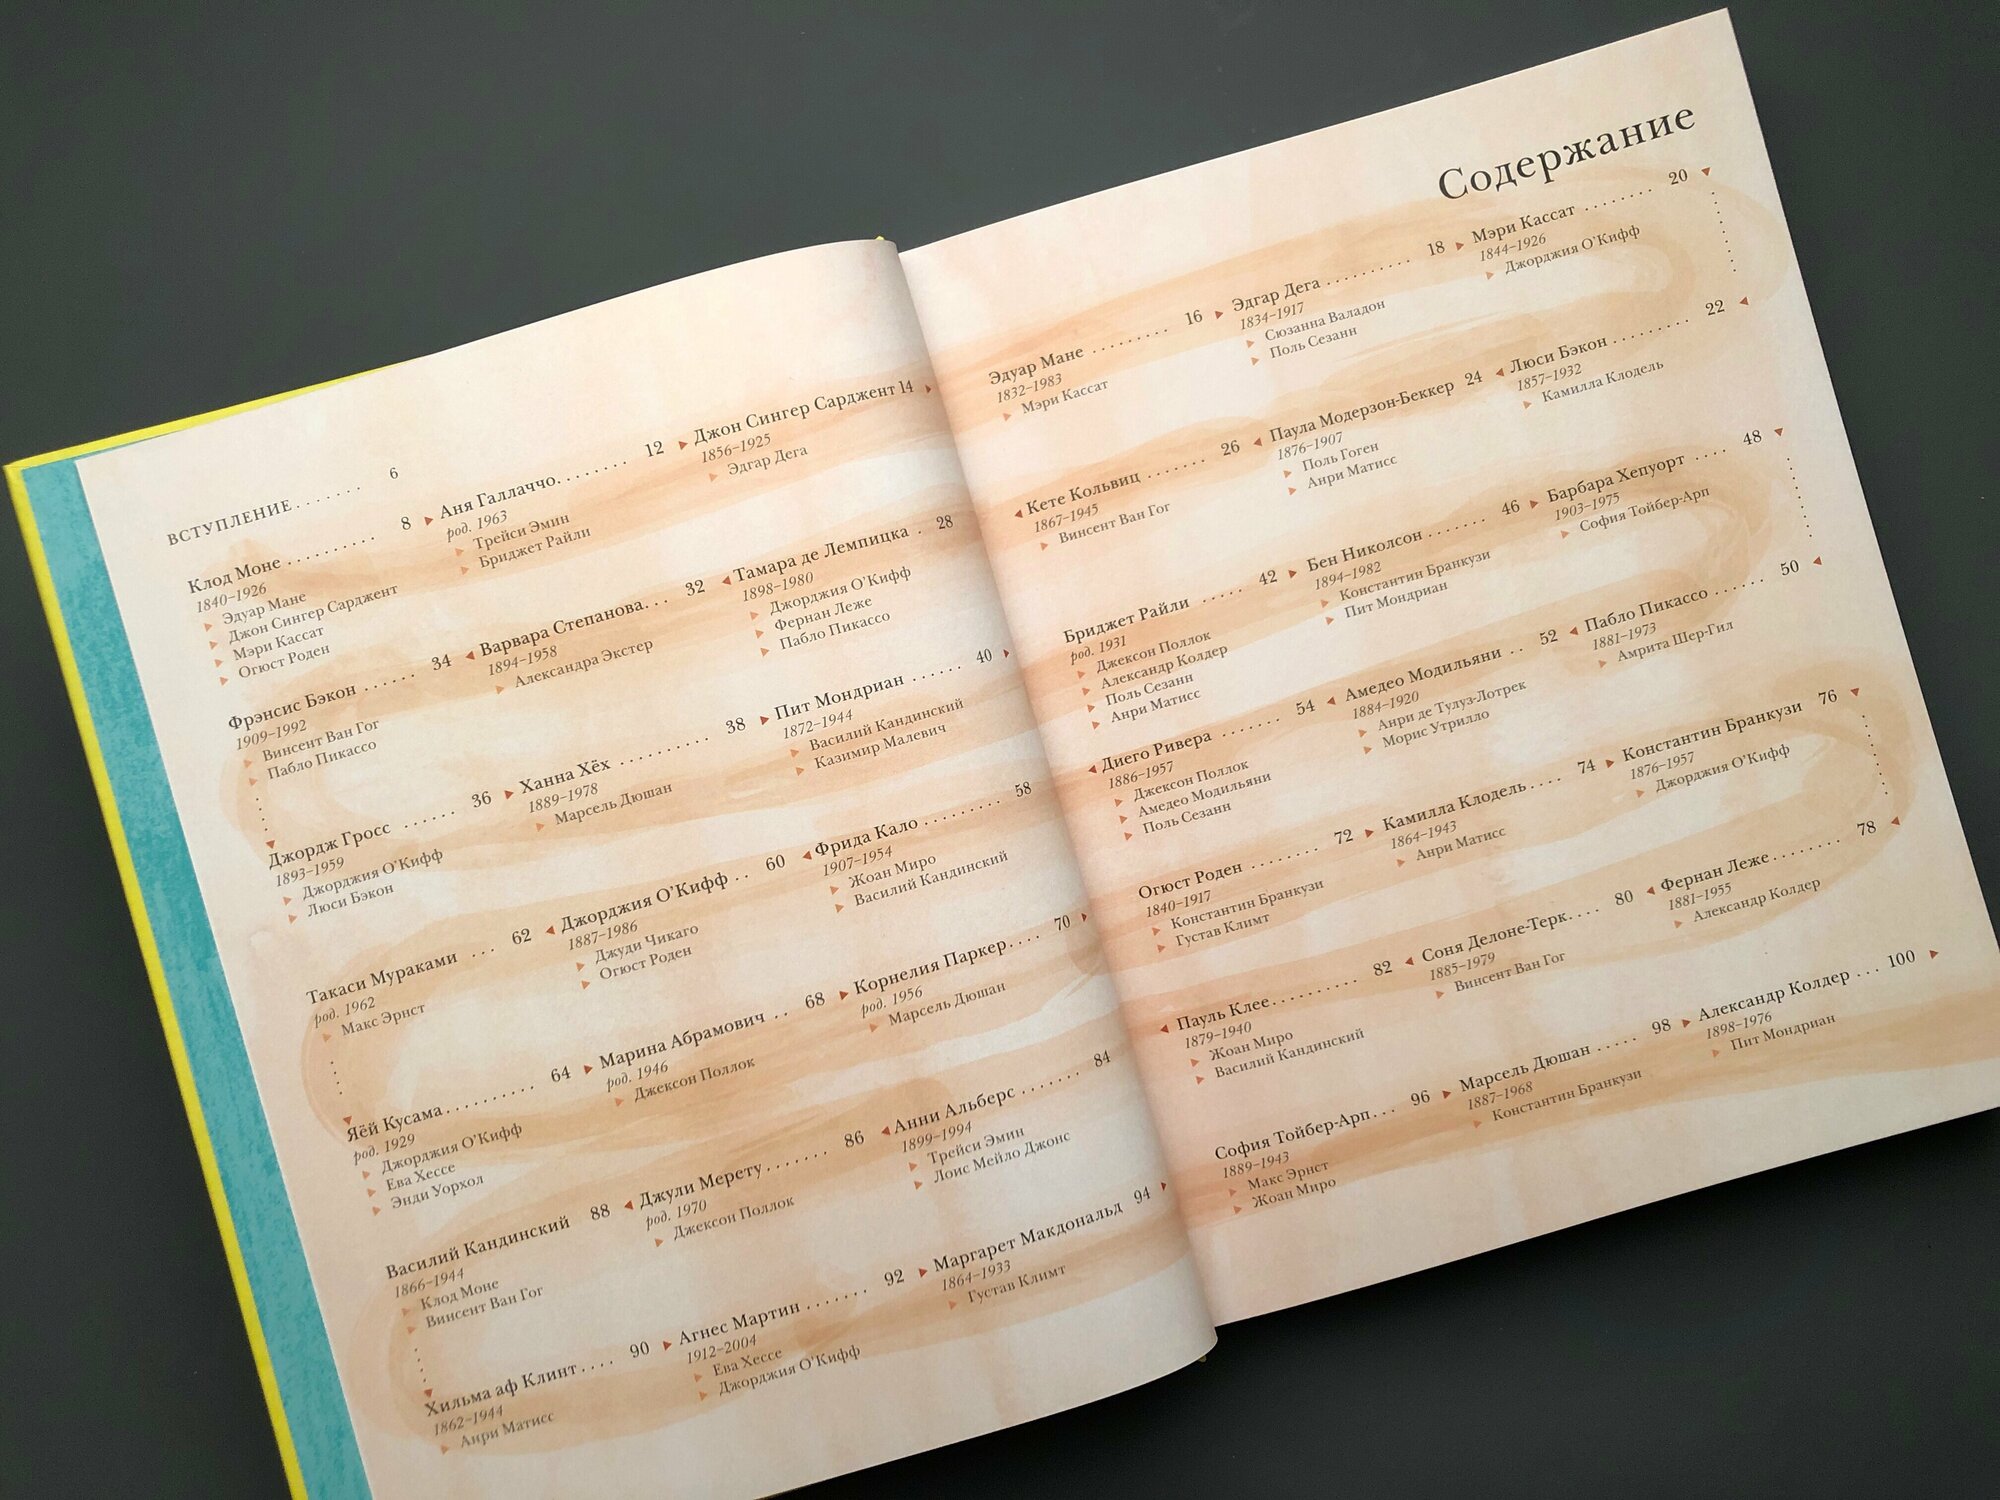 Содержание
ВСТУПЛЕНИЕ....... 6
Клод Моне .......... 8
1840–1926
Эдуар Мане
Джон Сингер Сарджент
Мэри Кассат
Огюст Роден
Аня Галлаччо........ 12
род. 1963
Трейси Эмин
Бриджет Райли
Джон Сингер Сарджент 14
1856–1925
Эдгар Дега
Эдуар Мане ......... 16
1832–1983
Мэри Кассат
Эдгар Дега .......... 18
1834–1917
Сюзанна Валадон
Поль Сезанн
Мэри Кассат ........ 20
1844–1926
Джорджия О'Кифф
Люси Бэкон ......... 22
1857–1932
Камилла Клодель
Паула Модерзон-Беккер 24
1876–1907
Поль Гоген
Анри Матисс
Кете Кольвиц ....... 26
1867–1945
Винсент Ван Гог
Тамара де Лемпицка . 28
1898–1980
Джорджия О'Кифф
Фернан Леже
Пабло Пикассо
Варвара Степанова... 32
1894–1958
Александра Экстер
Фрэнсис Бэкон ...... 34
1909–1992
Винсент Ван Гог
Пабло Пикассо
Джордж Гросс ...... 36
1893–1959
Джорджия О'Кифф
Люси Бэкон
Ханна Хёх .......... 38
1889–1978
Марсель Дюшан
Пит Мондриан ...... 40
1872–1944
Василий Кандинский
Казимир Малевич
Бриджет Райли ..... 42
род. 1931
Джексон Поллок
Александр Колдер
Поль Сезанн
Анри Матисс
Бен Николсон ....... 46
1894–1982
Константин Бранкузи
Пит Мондриан
Барбара Хепуорт .... 48
1903–1975
София Тойбер-Арп
Пабло Пикассо ...... 50
1881–1973
Амрита Шер-Гил
Амедео Модильяни .. 52
1884–1920
Анри де Тулуз-Лотрек
Морис Утрилло
Диего Ривера ....... 54
1886–1957
Джексон Поллок
Амедео Модильяни
Поль Сезанн
Фрида Кало ......... 58
1907–1954
Жоан Миро
Василий Кандинский
Джорджия О'Кифф .. 60
1887–1986
Джуди Чикаго
Огюст Роден
Такаси Мураками ... 62
род. 1962
Макс Эрнст
Яёй Кусама.......... 64
род. 1929
Джорджия О'Кифф
Ева Хессе
Энди Уорхол
Марина Абрамович .. 68
род. 1946
Джексон Поллок
Корнелия Паркер.... 70
род. 1956
Марсель Дюшан
Огюст Роден ........ 72
1840–1917
Константин Бранкузи
Густав Климт
Камилла Клодель..... 74
1864–1943
Анри Матисс
Константин Бранкузи 76
1876–1957
Джорджия О'Кифф
Фернан Леже........ 78
1881–1955
Александр Колдер
Соня Делоне-Терк.... 80
1885–1979
Винсент Ван Гог
Пауль Клее.......... 82
1879–1940
Жоан Миро
Василий Кандинский
Анни Альберс ....... 84
1899–1994
Трейси Эмин
Лоис Мейло Джонс
Джули Мерету ....... 86
род. 1970
Джексон Поллок
Василий Кандинский 88
1866–1944
Клод Моне
Винсент Ван Гог
Хильма аф Клинт .... 90
1862–1944
Анри Матисс
Агнес Мартин ....... 92
1912–2004
Ева Хессе
Джорджия О'Кифф
Маргарет Макдональд 94
1864–1933
Густав Климт
София Тойбер-Арп... 96
1889–1943
Макс Эрнст
Жоан Миро
Марсель Дюшан ..... 98
1887–1968
Константин Бранкузи
Александр Колдер ... 100
1898–1976
Пит Мондриан